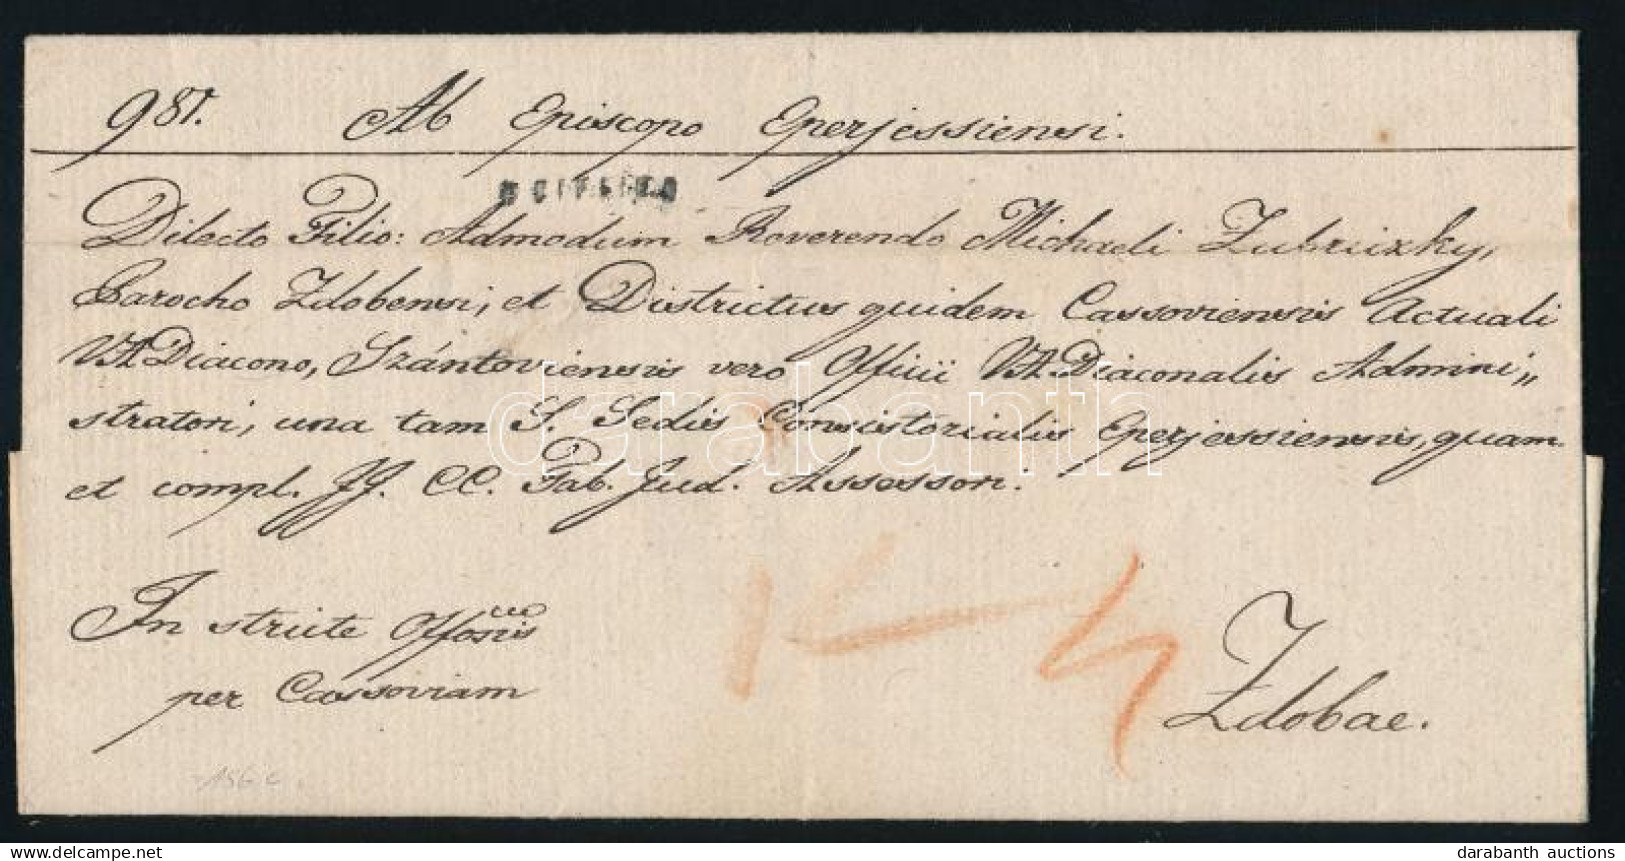 987. Ab Episcopo Eperjessiensi.
Dilecto Filio: Admodum Reverendo Michaeli
Parocho Zdobensi, et Districtus quidem Cassoviensis Actuali
VADiacono, Szántoviensis vero Officii VADiaconalis Admini„
stratori, una tam S. Sedis Consistorialis Eperjessiensis, quam
et compl. JJ. CC. Tab. Jud. Assessori.
In stricte Offosis
per Cassoviam
Zdobae.
darabanth
darabanth auctions